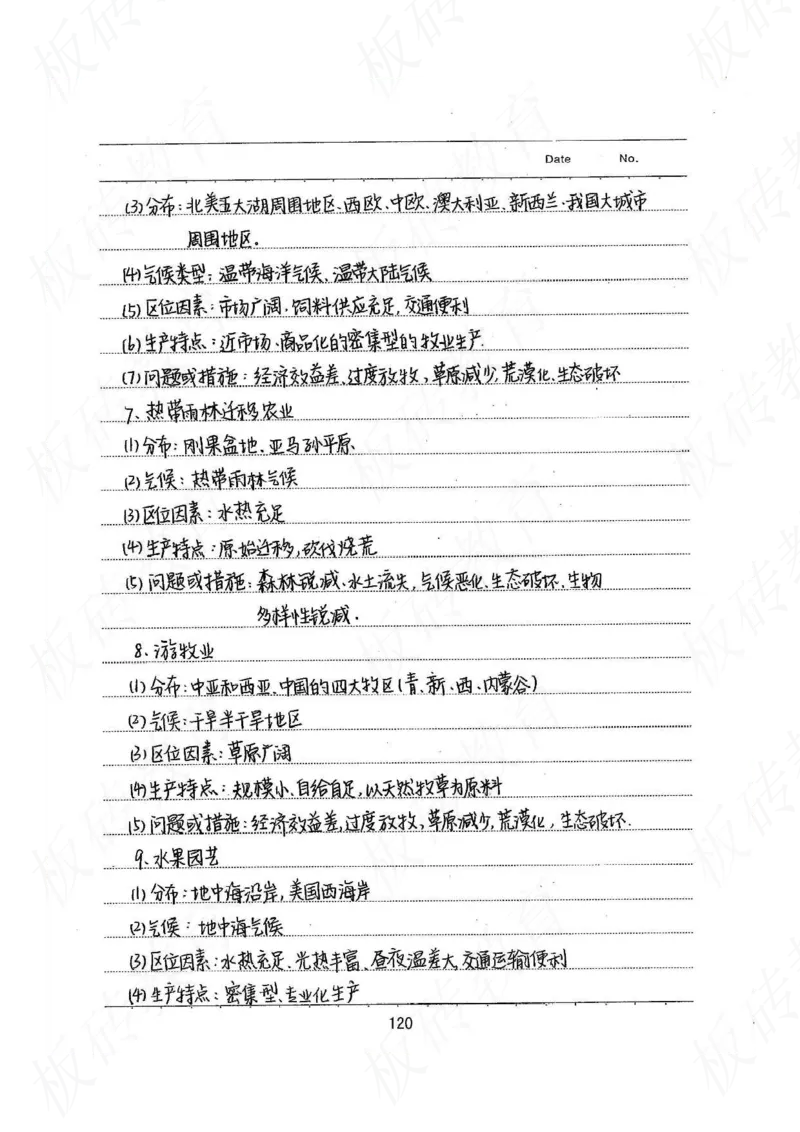 Date No.
(3)分布:北美五大湖周围地区、西欧、中欧、澳大利亚、新西兰、我国大城市
周围地区.
(4)气候类型:温带海洋气候、温带大陆气候
(5)区位因素:市场广阔、饲料供应充足,交通便利
(6)生产特点:近市场、商品化的密集型的牧业生产.
(7)问题或措施:经济效益差、过度放牧,草原减少,荒漠化、生态破坏
7、热带雨林迁移农业
(1)分布:刚果盆地、亚马孙平原、
(2)气候:热带雨林气候
(3)区位因素:水热充足
(4)生产特点:原始迁移,砍伐烧荒
(5)问题或措施:森林锐减、水土流失,气候恶化、生态破坏、生物
多样性锐减.
8、游牧业
(1)分布:中亚和西亚、中国的四大牧区(青、新、西、内蒙谷)
(2)气候:干旱半干旱地区
(3)区位因素:草原广阔
(4)生产特点:规模小、自给自足,以天然牧草为原料
(5)问题或措施:经济效益差,过度放牧,草原减少,荒漠化,生态破坏.
9、水果园艺
(1)分布:地中海沿岸,美国西海岸
(2)气候:地中海气候
(3)区位因素:水热充足、光热丰富、昼夜温差大,交通运输便利
(4)生产特点:密集型、专业化生产
120
板砖教育